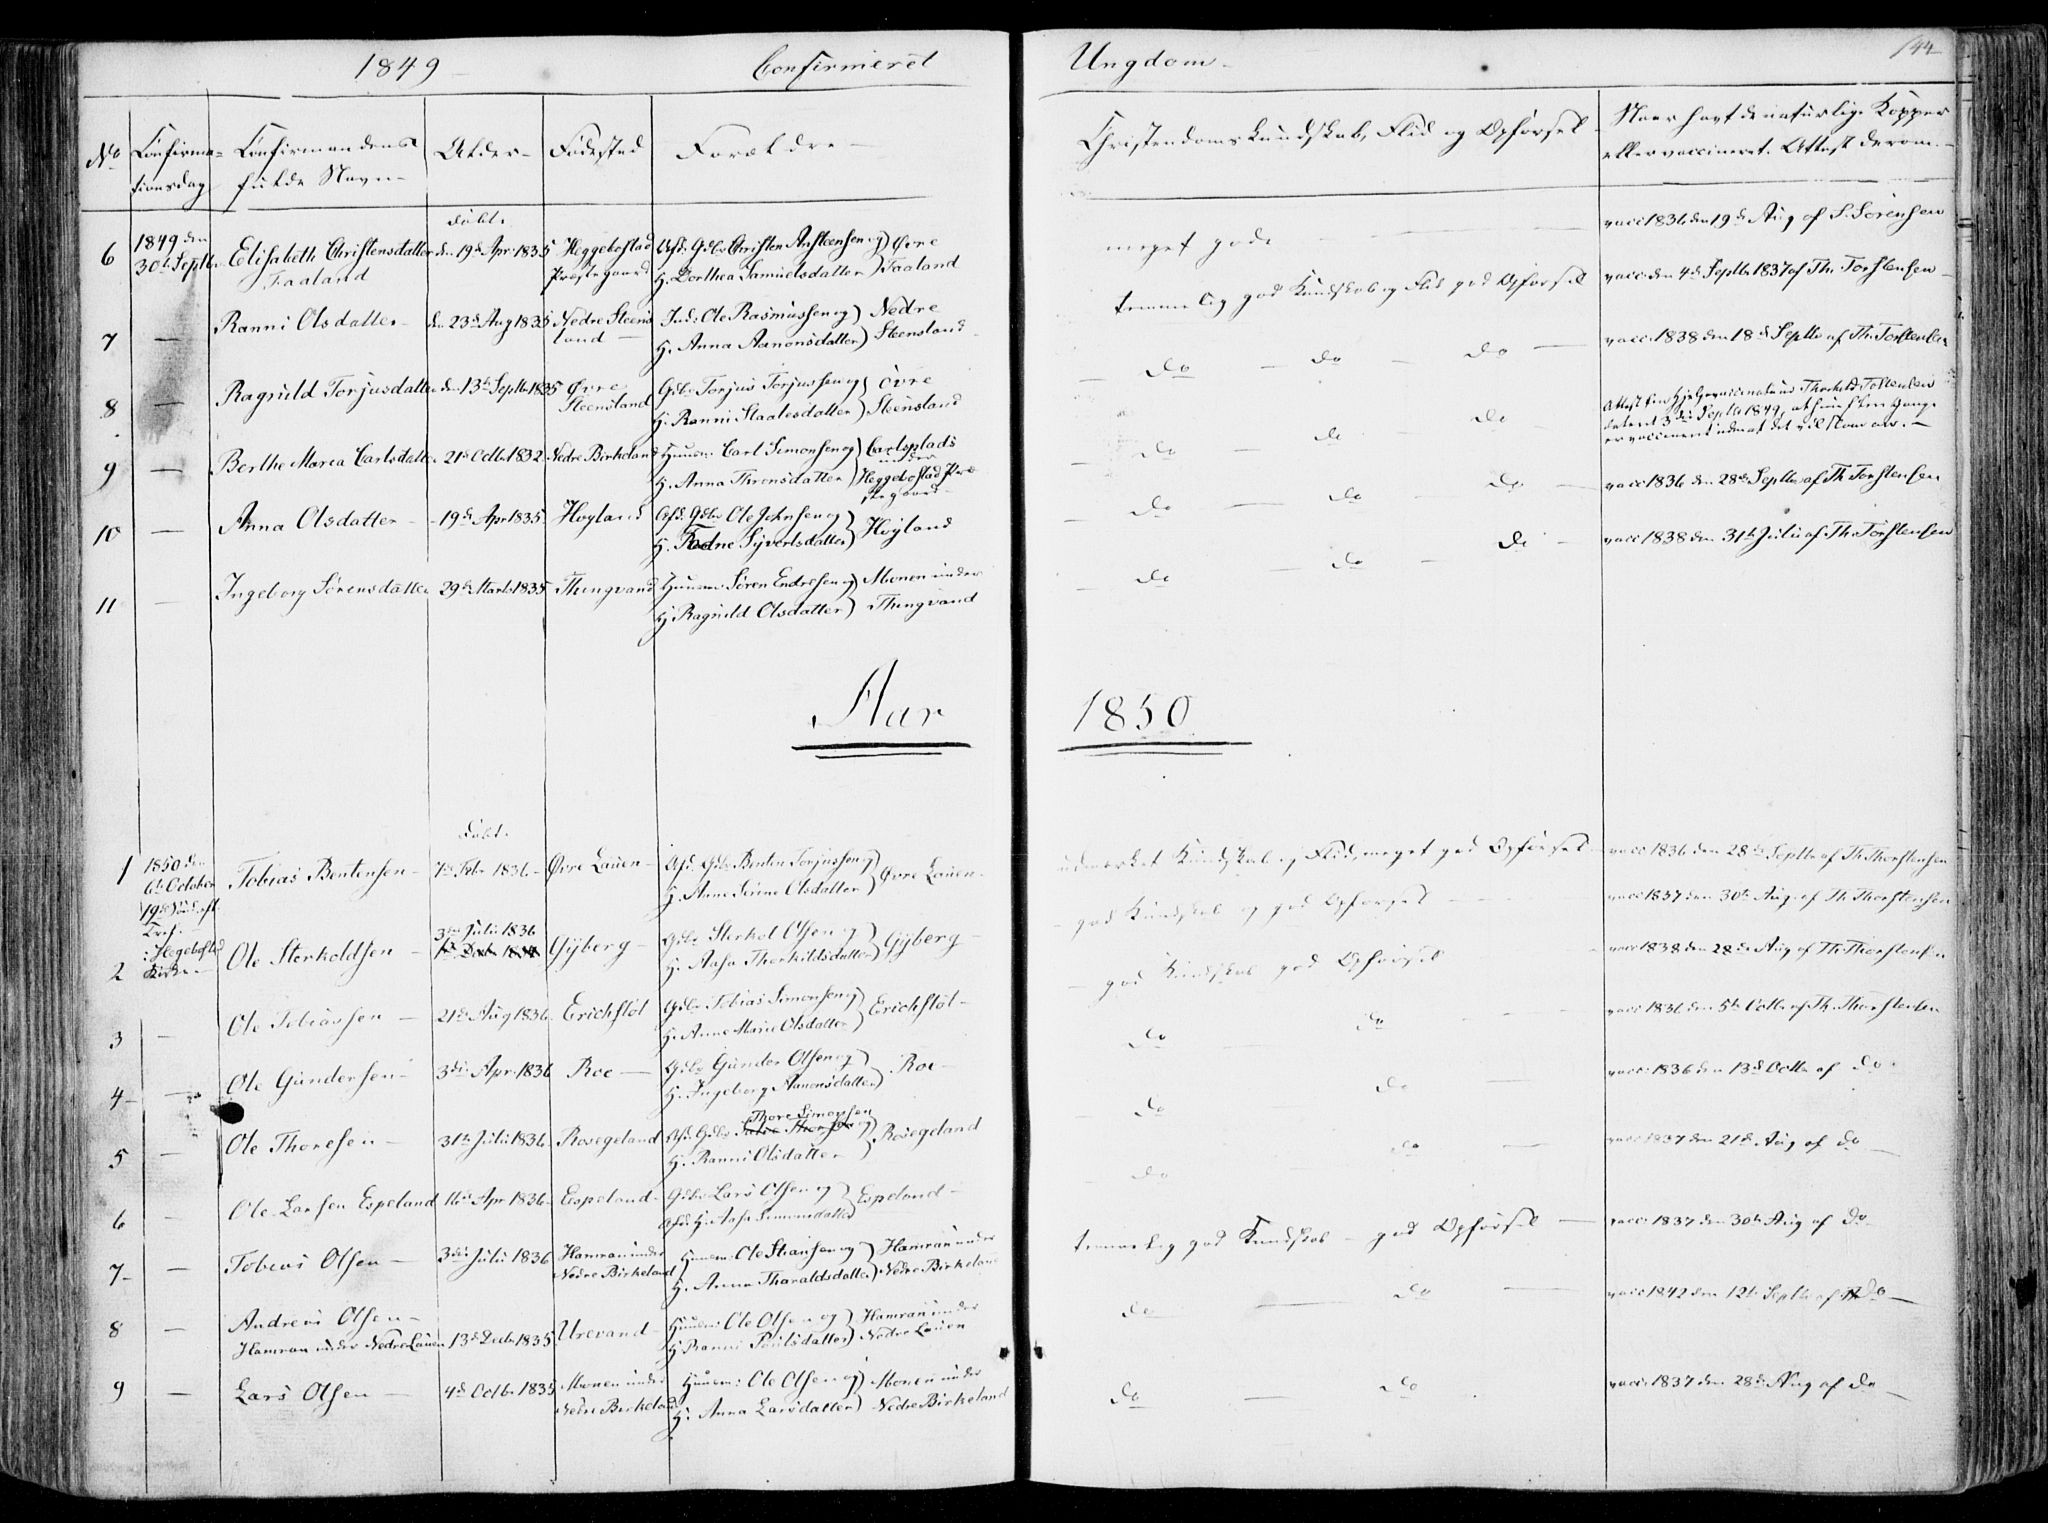 1849 Confirmeret Ungdom 144
No Confirma- Confirmandens Alder Fødested Forældre Christendomskundskab, Flid og Opførsel Naar havt de naturlige Kopper
tionsdag fulde Navn eller vaccineret. Attest derom.
6 1849 den 30te Septbr Elisabeth Christensdatter Faaland Døbt. den 19de Apr 1835 Heggebostad Præstegaard Afsk. Gdbr Christen Ansteensen og H. Dorthea Samuelsdatter Øvre Faaland meget gode vacc 1836 den 19de Aug af S. Sørensen
7 — Ranni Olsdatter den 23de Aug 1835 Nedre Steensland Inds: Ole Rasmussen og H. Anna Aanonsdatter Nedre Steensland temmelig god Kundskab og Flid god Opførsel vacc: den 4de Septbr 1837 af Th. Torstensen
8 — Ragnild Torjusdatter den 13de Septbr 1835 Øvre Steensland Gdbr Torjus Torjussen og H. Ranni Staalesdatter Øvre Steensland do do do vacc: 1838 den 18de Septbr af Th. Torstensen
9 — Berthe Maria Carlsdatter 21de Octbr 1832 Nedre Birkeland Huusm: Carl Simonsen og H. Anna Thronsdatter Carlsplads under Heggebostad Præstegaard do do do Attest fra Thorkild Torstensen dateret 3die Septbr 1849, at hun
er vaccineret uden at det vil
10 — Anna Olsdatter 19de Apr 1835 Høyland Afsk. Gdbr Ole Johnsen og H. Tedne Syvertsdatter Høyland do do do vacc 1836 den 28de Septbr af Th. Torstensen
11 — Ingeborg Sørensdatter 29de Marts 1835 Thingvand Huusm: Søren Endresen og H. Ragnild Olsdatter Monen under Thingvand do do do vacc 1838 den 31te Juli af Th. Torstensen
Aar 1850
1 1850 den 6te October 19de Sønd. eft. Tref. i Hegebostad Kirke Tobias Bentensen Døbt. 7de Febr 1836 Øvre Lauen Afsk. Gdbr Benten Torjussen og H. Anne Sirine Olsdatter Øvre Lauen udmærket Kundskab og Flid, meget god Opførsel vacc 1836 den 28de Septbr af Th. Thorstensen
2 Ole Sterkoldsen 3die Juli 1836 Gyberg Gdbr Sterkol Olsen og H. Aasa Therkildsdatter Gyberg god Kundskab og god Opførsel vacc 1837 den 30te Aug af Th. Thorstensen
3 — Ole Tobiassen 21de Aug 1836 Erichstøl Gdbr Tobias Simonsen og H. Anne Marie Olsdatter Erichstøl god Kundskab god Opførsel vacc 1838 den 28de Aug af Th. Thorstensen
4 — Ole Gundersen 3die Apr 1836 Roe Gdbr Gunder Olsen og H. Ingeborg Aanonsdatter Roe do do vacc 1836 den 5te Octbr af Th. Thorstensen
5 — Ole Thoresen 31te Juli 1836 Rosegeland Afsk. Gdbr Thore Simonsen og H. Ranni Olsdatter Rosegeland do do vacc: 1836 den 13de Octbr af do
6 — Ole Larsen Espeland 16de Apr 1836 Espeland Gdbr Lars Olsen og Afsk. H. Aasa Simonsdatter Espeland do do vacc: 1837 den 21de Aug af do
7 — Tobias Olsen 3die Juli 1836 Hamran under Nedre Birkeland Huusm: Ole Stiansen og H. Anna Tharaldsdatter Hamran under Nedre Birkeland temmelig god Kundskab god Opførsel vacc: 1837 den 30te Aug af do
8 — Andreas Olsen Hamran under Nedre Lauen 13de Decbr 1835 Urevand Huusm: Ole Olsen og H. Ranni Poulsdatter Hamran under Nedre Lauen do do vacc: 1842 den 12te Septbr af do
9 — Lars Olsen 4de Octbr 1835 Monen under Nedre Birkeland Huusm: Ole Olsen og H. Anna Larsdatter Monen under Nedre Birkeland do do vacc: 1837 den 28de Aug af do